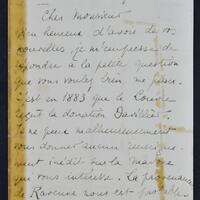 Cher Monsieur
heureux d'avoir de vos
nouvelles, je m'empresse de
répondre à la petite question
que vous voulez bien me poser.
C'est en 1883 que le Louvre
reçut la donation Davillier.
Je ne peux malheureusement
vous donner aucun renseigne-
ment inédit sur la
qui vous intéresse. La provenance
de Ravenne nous est